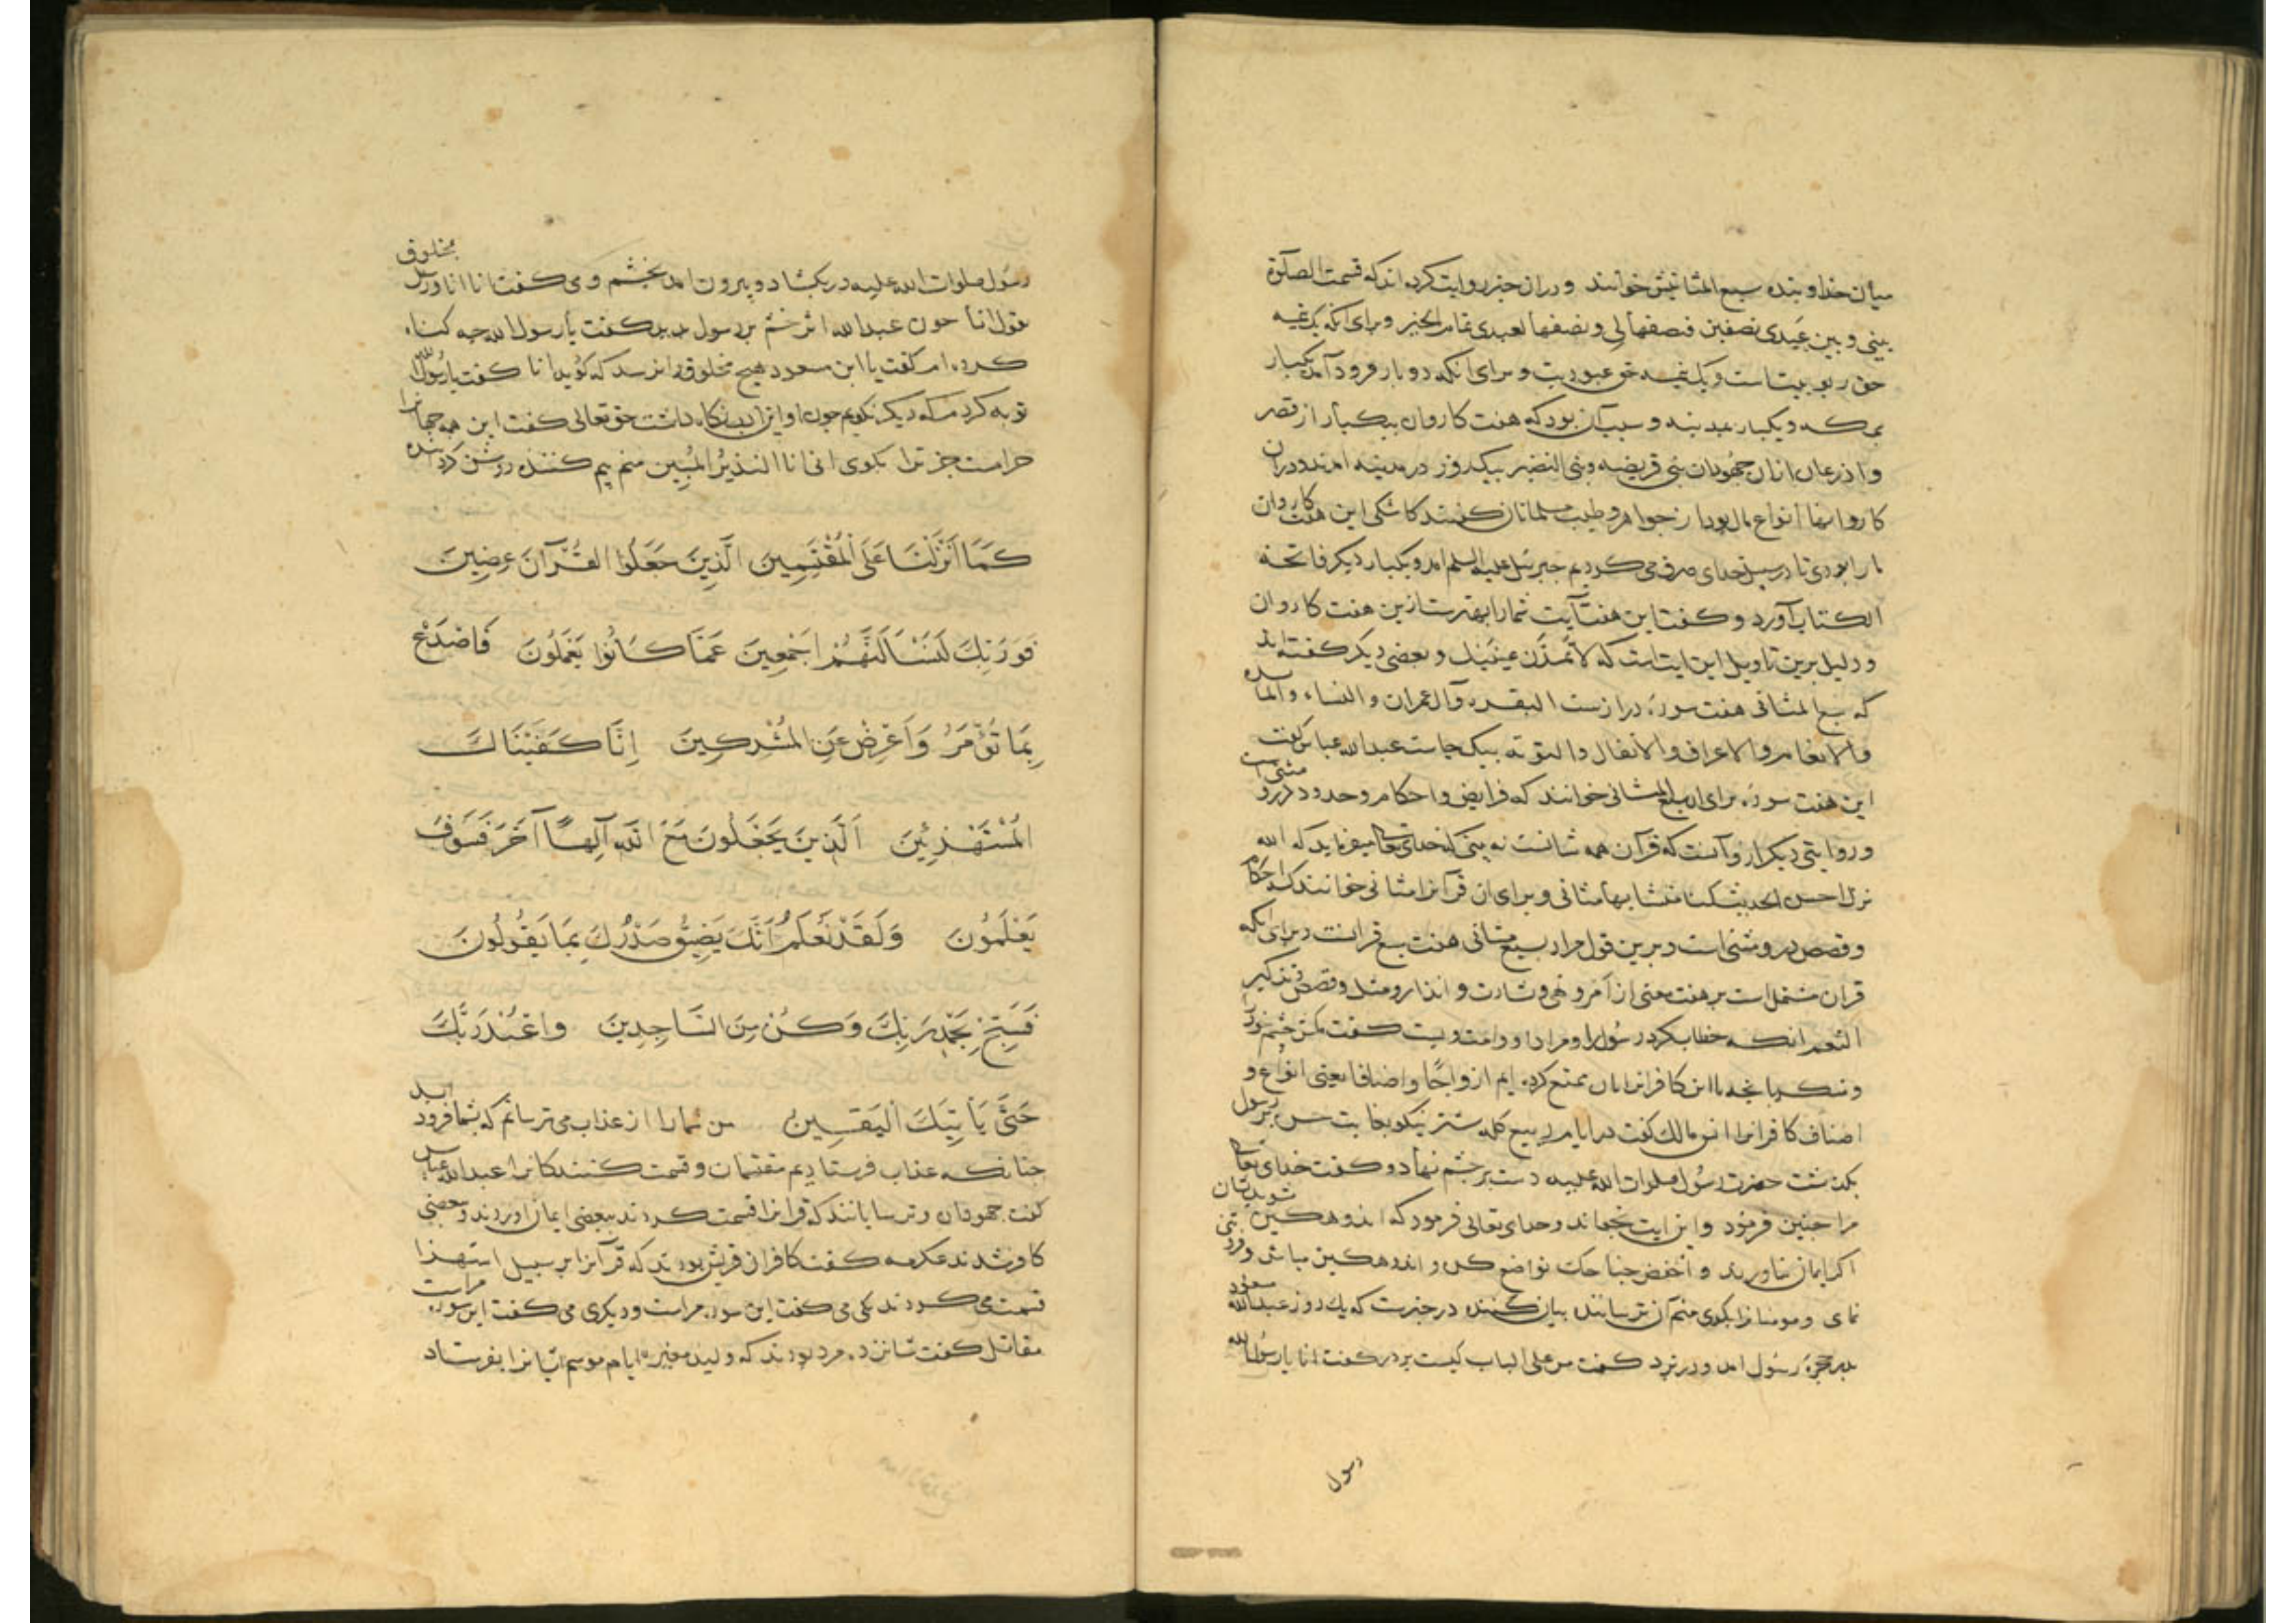 میان خدا و بنده سبع المثانیش خوانند و دران خبر روایت کرده اند که قسمت الصلوة
بینی و بین عبدی نصفین فنصفها لی و نصفها لعبدی تمام الخبر و برای آنکه یک نیمه
حق ربوبیت است و یک نیمه حق عبودیت و برای آنکه دو بار فرود آمد یکبار
بمکه و یکبار بمدینه و سبب آن بود که هفت کاروان بیکبار از قصر
و اذرعات ازان جهودان بنی قریضه و بنی النضیر بیکروز در مدینه امدند و دران
کاروانها انواع مال بود از جواهر و طیب مسلمانان گفتند کاشکی این هفت کاروان
ما را بودی تا در سبیل خدای صرف می کردیم جبرئیل علیه السلم امد و یکبار دیگر فاتحة
الکتاب آورد و گفت این هفت آیت شما را بهتر ست ازین هفت کاروان
و دلیل برین تاویل این ایت است که لا تمدن عینیک و بعضی دیگر گفته اند
که سبع المثانی هفت سورة دراز ست البقره و آل عمران و النساء و المائده
و الانعام و الاعراف و الانفال و التوبة بیک جاست عبدالله عباس گفت
این هفت سورة برای ان سبع المثانی خوانند که فرایض و احکام و حدود درو مثنی است
و روایتی دیگر از و آنست که قرآن همه مثانست نه بینی که خدای تعالی میفرماید که الله
نزل احسن الحدیث کتابا متشابها مثانی و برای ان قرآنرا مثانی خوانند که احکام
و قصص درو مثنی است و برین قول مراد بسبع مثانی هفت سبع قرانست و برای انکه
قران مشتمل است بر هفت معنی از امر و نهی و بشارت و انذار و مثل و قصص و تذکیر
النعم انکه خطاب کرد رسول را و مراد او و امت ویست گفت مکن چشم خود را
و منگر بانچه ما این کافرانرا بان تمتع کرده ایم ازواجا و اصنافا یعنی انواع و
اصناف کافرانرا انس مالک گفت در ایام ربیع گله شتر نیکو بغایت حسن بر رسول
بگذشت حضرت رسول صلوات الله علیه دست بر چشم نهاد و گفت خدای تعالی
مرا چنین فرمود و این ایت بخواند و خدای تعالی فرمود که اندوهگین مشو بدیشان
اگر ایمان نیاورند و اخفض جناحک تواضع کن و اندوهگین مباش و فروتنی
نمای و مومنانرا بگوی منم آن ترساننده بیان کننده در خبرست که یک روز عبدالله مسعود
بدر حجرة رسول امد و در بزد گفت من علی الباب کیست بر در گفت انا یا رسول الله
رسول
رسول صلوات الله علیه در بکشاد و بیرون امد بخشم و می گفت انا انا و مخلوق
یقول انا چون عبدالله اثر خشم بر رسول بدید گفت یا رسول الله چه گناه
کرده ام گفت یا ابن مسعود هیچ مخلوق را نرسد که گوید انا گفت یا رسول الله
توبه کردم که دیگر نگویم چون او این ادب نگاه داشت حق تعالی گفت این همه جهانرا
حرامست جز ترا بگوی انی انا النذیر المبین منم بیم کننده روشن گرداننده
کَمَا اَنْزَلْنَا عَلَی الْمُقْتَسِمِینَ الَّذِینَ جَعَلُوا القُرْآنَ عِضِینَ
فَوَرَبِّکَ لَنَسْأَلَنَّهُمْ اَجْمَعِینَ عَمَّا کَانُوا یَعْمَلُونَ فَاصْدَعْ
بِمَا تُؤْمَرُ وَاَعْرِضْ عَنِ الْمُشْرِکِینَ اِنَّا کَفَیْنَاکَ
الْمُسْتَهْزِئِینَ اَلَّذِینَ یَجْعَلُونَ مَعَ اللهِ آلِهاً آخَرَ فَسَوْفَ
یَعْلَمُونَ وَلَقَدْ نَعْلَمُ اَنَّکَ یَضِیقُ صَدْرُکَ بِمَا یَقُولُونَ
فَسَبِّحْ بِحَمْدِ رَبِّکَ وَکُنْ مِنَ السَّاجِدِینَ وَاعْبُدْ رَبَّکَ
حَتَّی یَأْتِیَکَ الْیَقِینُ من شما را از عذاب می ترسانم که بشما فرود اید
چنانکه عذاب فرستادیم مقتسمان و قسمت کنندکانرا عبدالله عباس
گفت جهودان و ترسایانند که قرانرا قسمت کردند ببعضی ایمان اوردند و ببعضی
کافر شدند عکرمه گفت کافران قریش بودند که قرآنرا بر سبیل استهزا
قسمت می کردند یکی می گفت این سوره مراست و دیگری می گفت این سوره مراست
مقاتل گفت شانزده مرد بودند که ولید مغیره ایام موسم ایشانرا بفرستاد